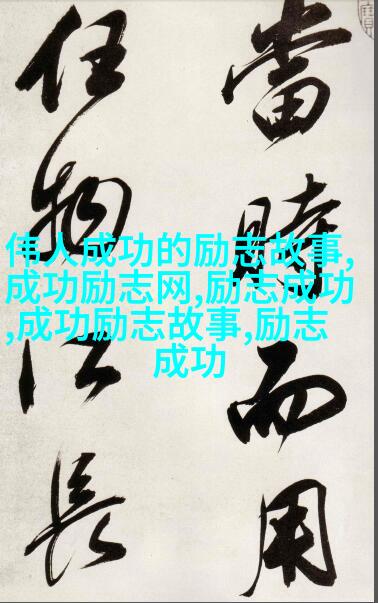 當時而用
任物以長
伟人成功的励志故事,
成功励志网,励志成功
,成功励志故事,励志
成功